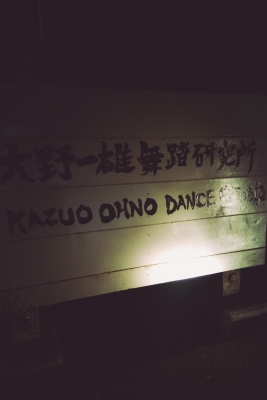 大野一雄舞踏研究所
KAZUO OHNO DANCE STUDIO